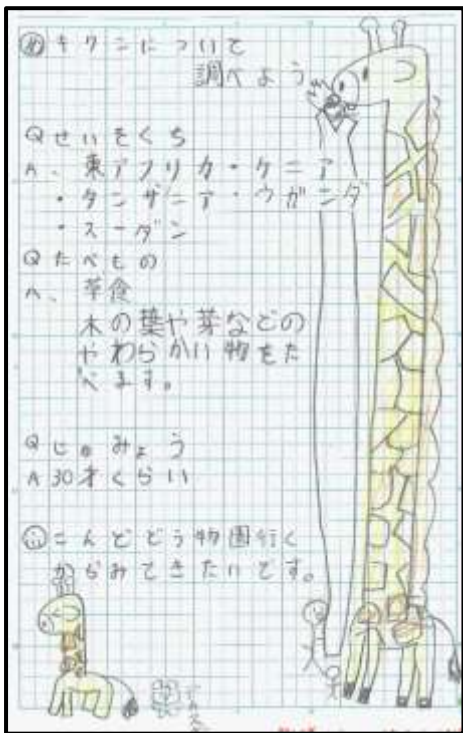 ㋱キリンについて
調べよう
Qせいそくち
A、東アフリカ・ケニア
・タンザニア・ウガンダ
・スーダン
Qたべもの
A、草食
木の葉や芽などの
やわらかい物をた
べます。
Qじゅみょう
A30才くらい
こんどどう物園行く
からみてきたいです。